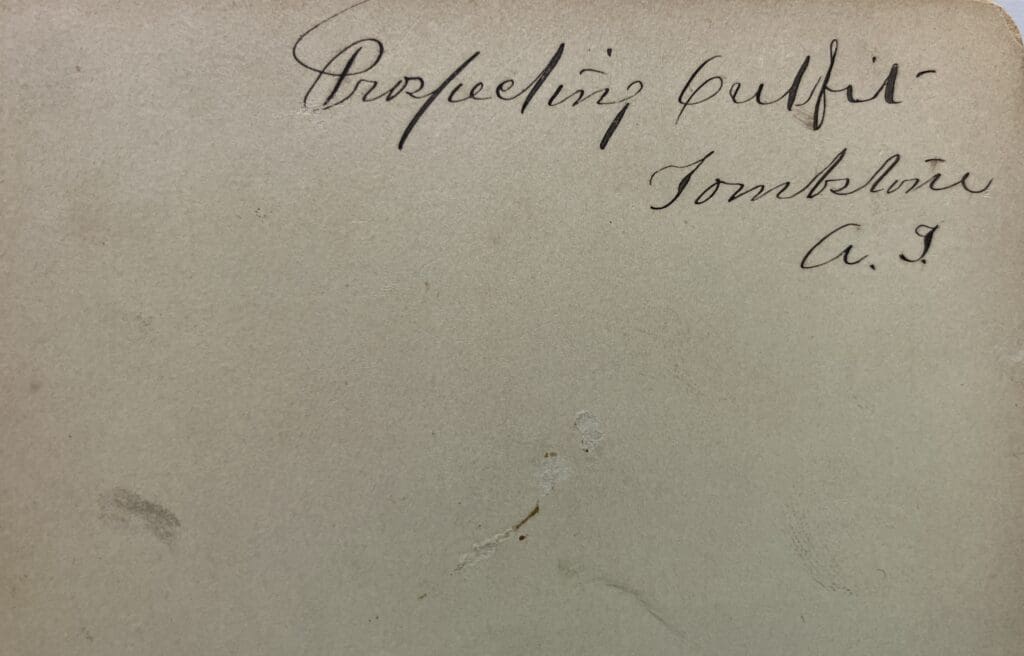 Prospecting Outfit
Tombstone
A. T.